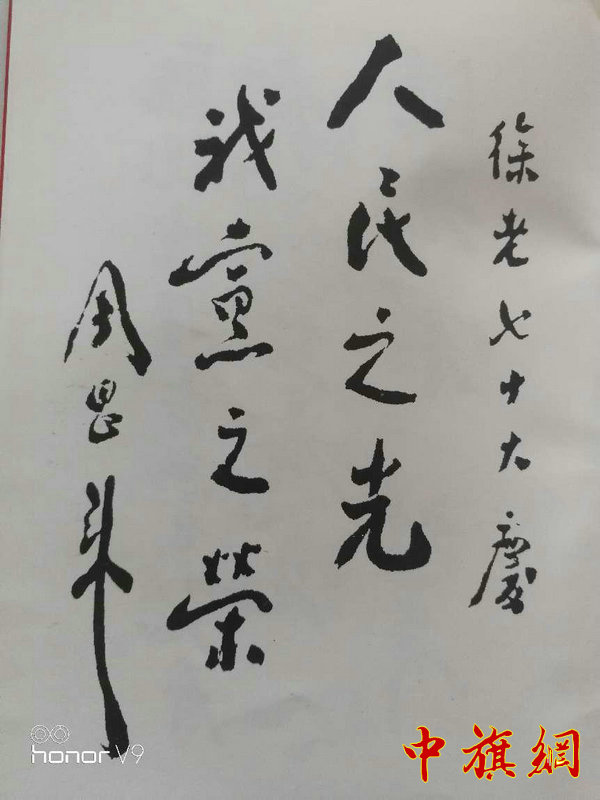 徐老七十大慶
人民之光
我黨之榮
周恩来
honor V9
中旗網